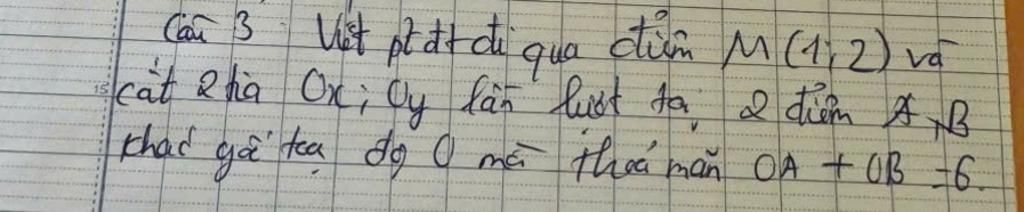 Câu 3 Viết pt đt đi qua điểm M (1; 2) và
cắt 2 tia Ox; Oy lần lượt tại 2 điểm A, B
khác gốc tọa độ O mà thoả mãn OA + OB = 6.